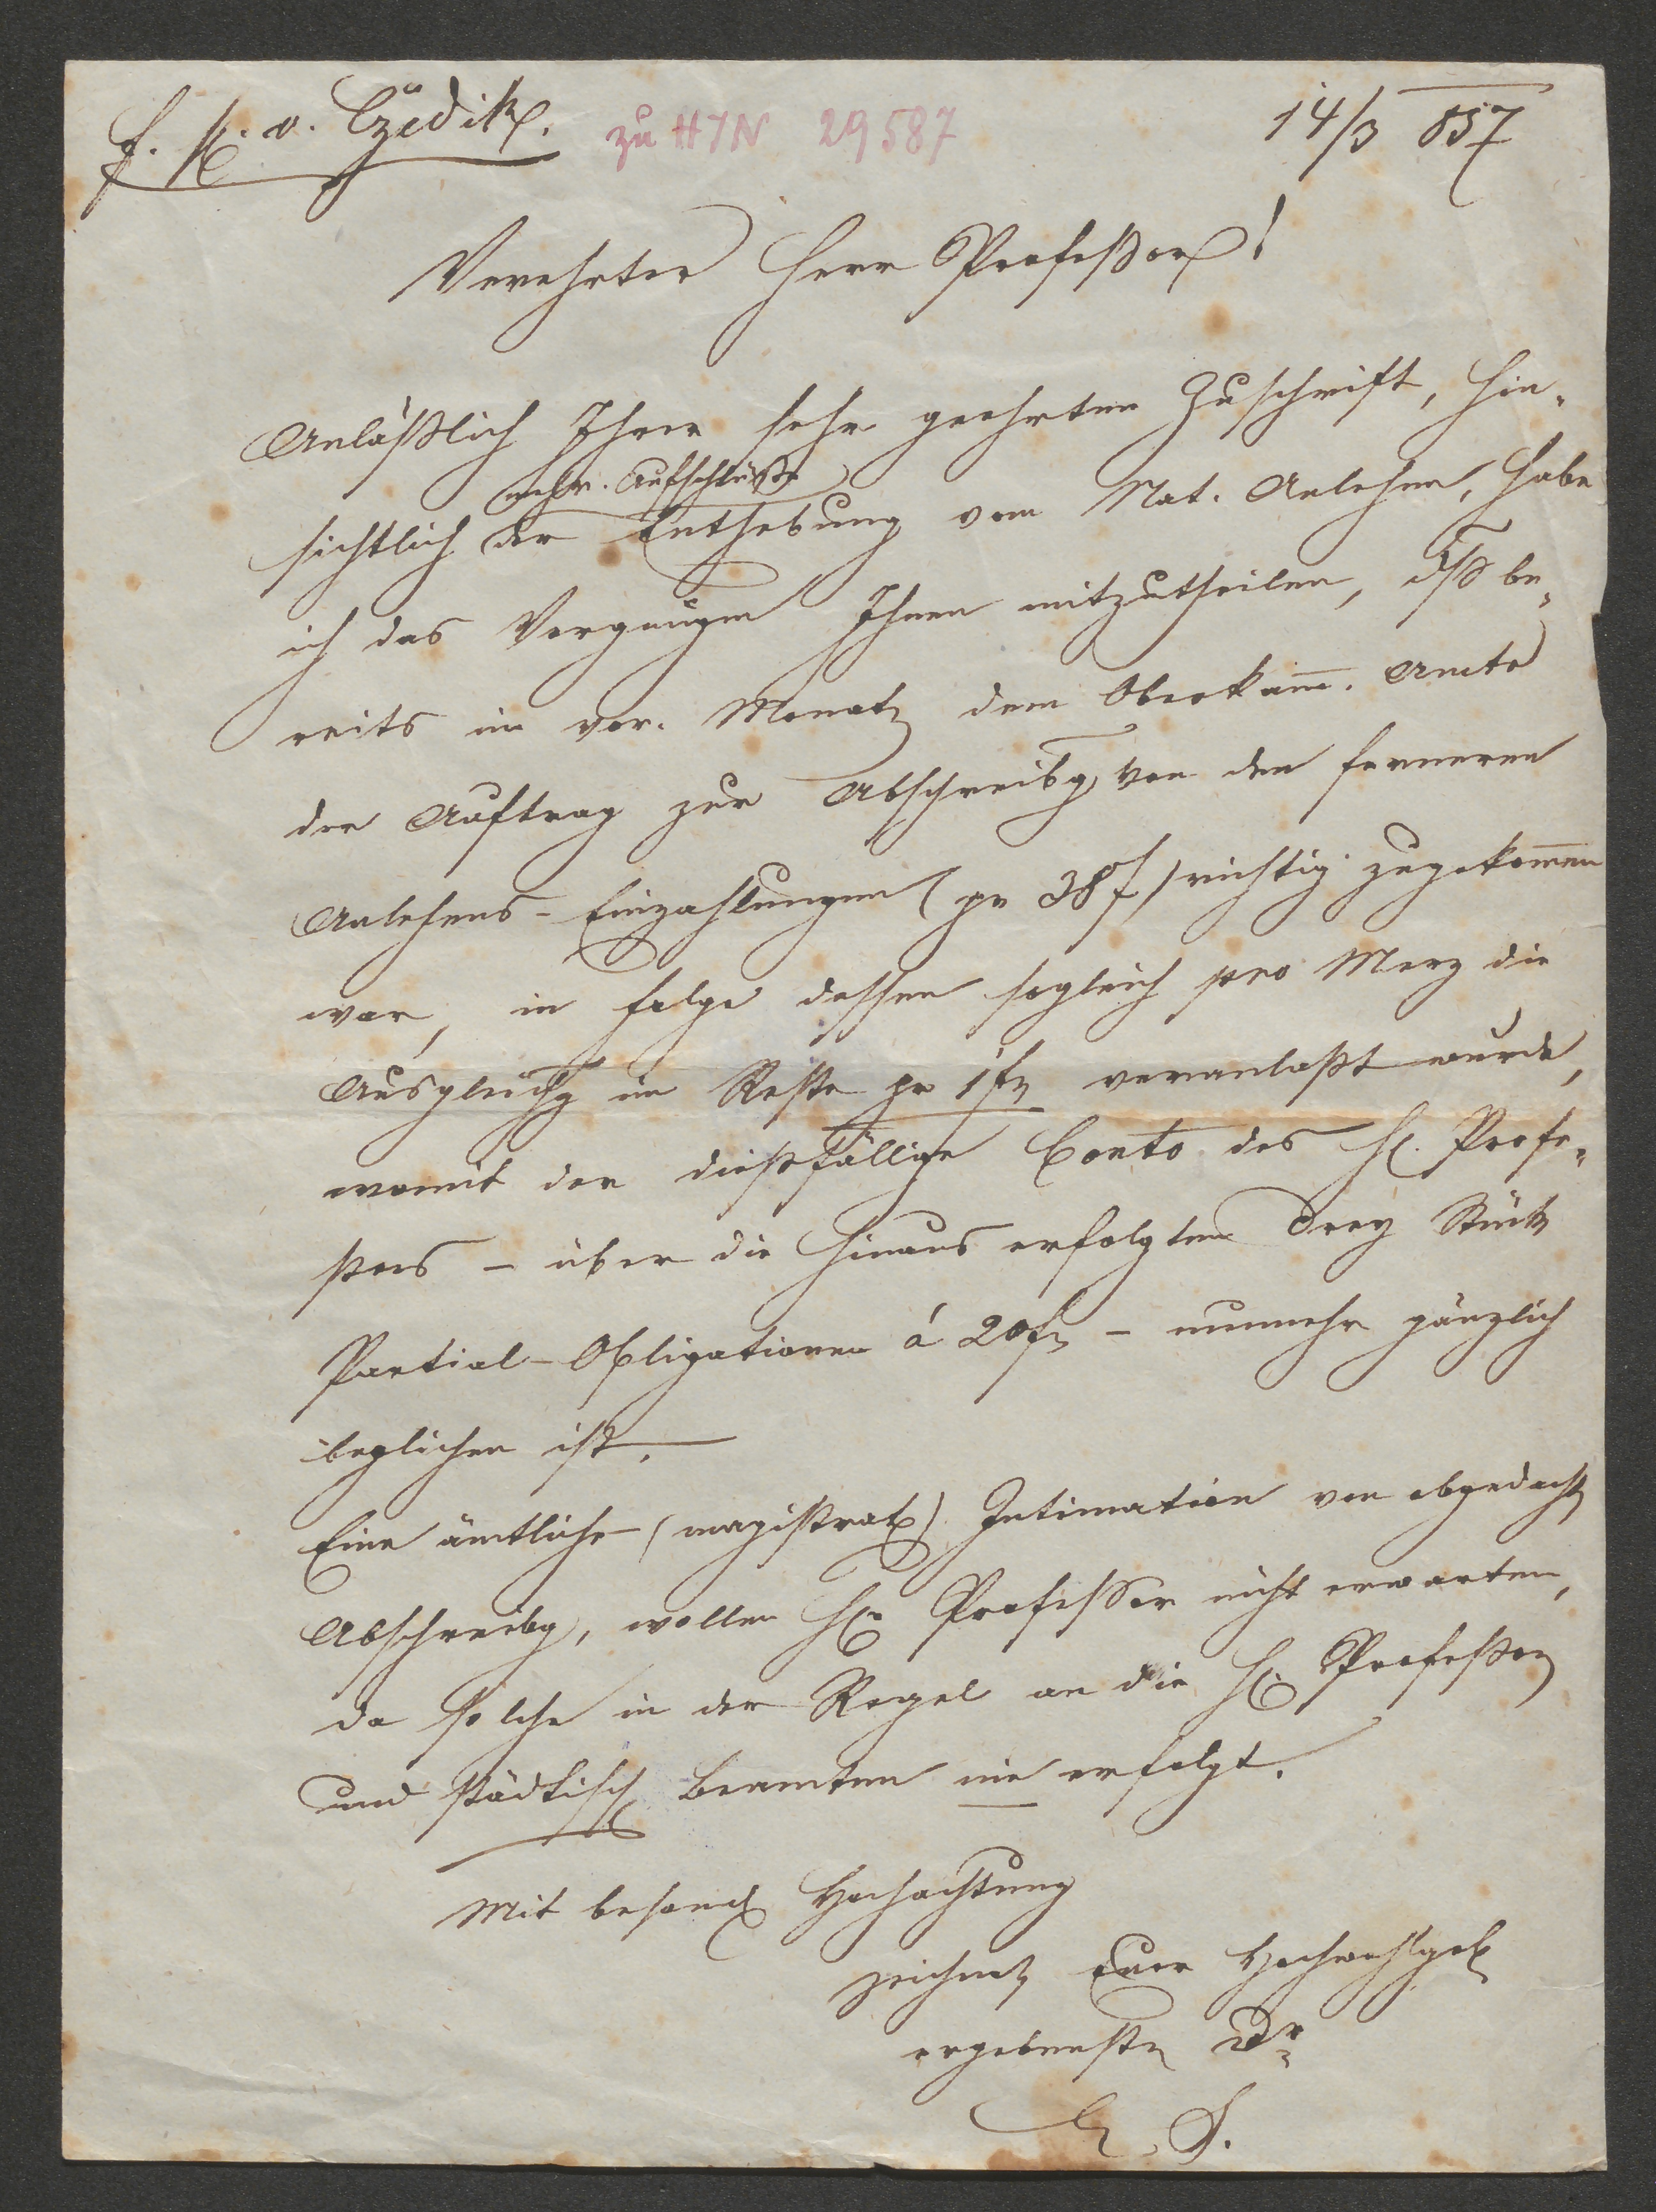 f. H. v. Czedik.
zu HIN 29587
14/3 857
Verehrter Herr Professor!
Anläßlich Ihrer sehr geehrten Zuschrift, hin-
mehr. Aufschlüße
sichtlich der Enthebung vom Nat. Anlehen, habe
ich das Vergnügen Ihnen mitzutheilen, dß be-
reits im vor. Monat dem Oberkam̅. Amte
der Auftrag zur Abschreibg von den ferneren
Anlehens-Einzahlungen (pr 38 f) richtig zugekom̅en
war, in folge dessen sogleich pro Merz die
Ausgleichg im Reste pr 1 f veranlaßt wurde,
womit der dießfällige Conto des H. Profe-
ßors – über die hinaus erfolgten drey Stück
Partial-Obligationen á 20 f – nunmehr gänzlich
beglichen ist.
Eine ämtliche (magistrat) Intimation von obgedacht
Abschreibg, wollen H Professor nicht erwarten,
da solche in der Regel an die H Professor
und städtisch Beamten nie erfolgt.
Mit besond Hochachtung
zeichnet Euer Hochwohlgeb
ergebenster Dr
S.